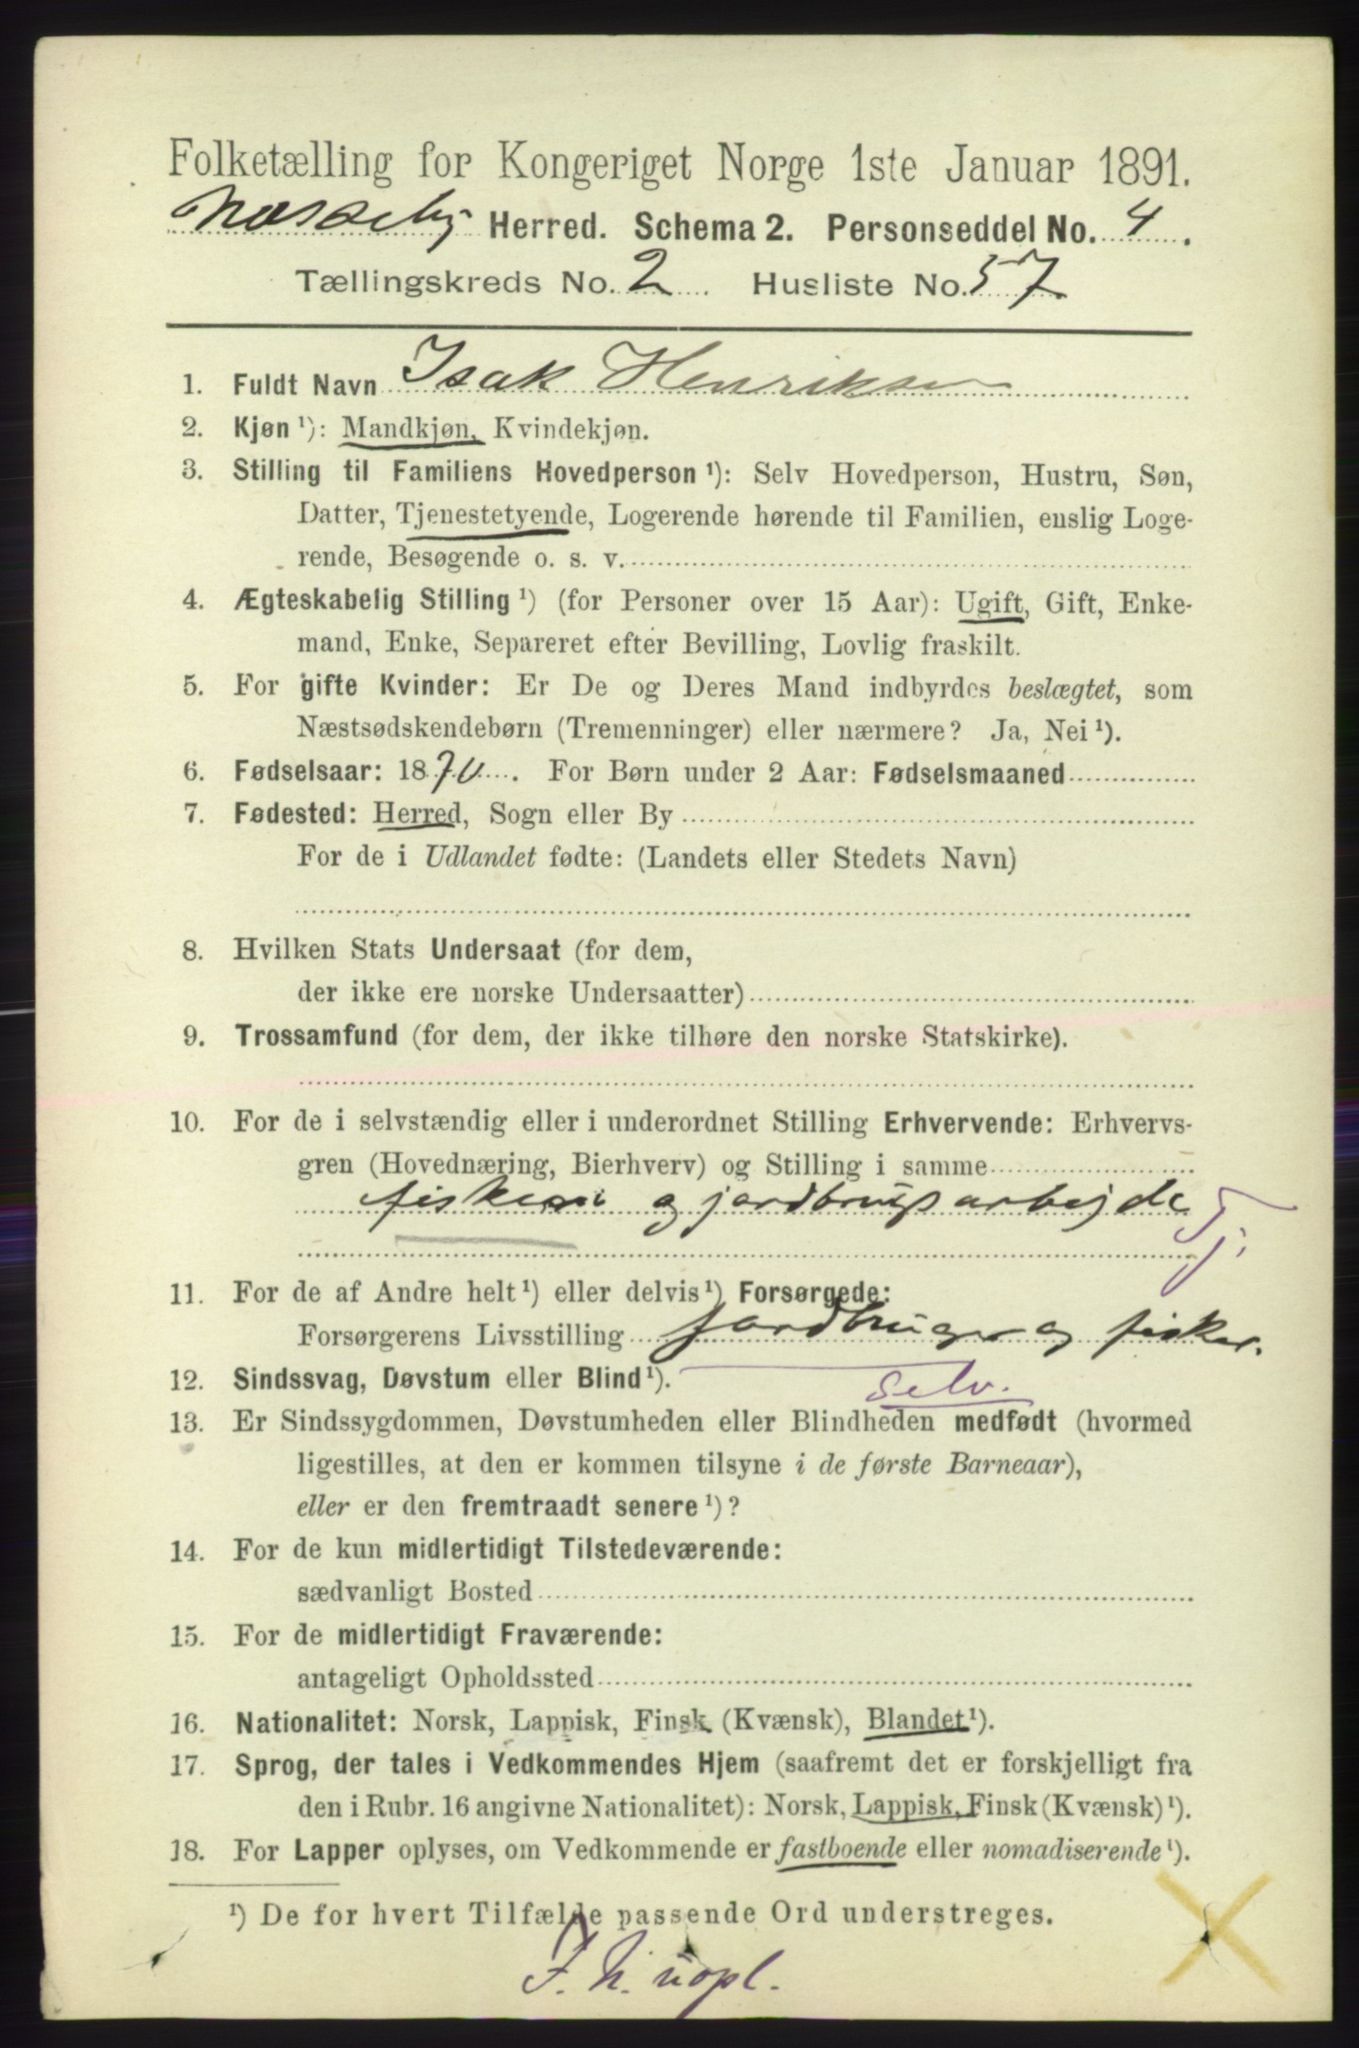 Folketælling for Kongeriget Norge 1ste Januar 1891.
Næsseby Herred. Schema 2. Personseddel No. 4.
Tællingskreds No. 2 Husliste No. 57
1. Fuldt Navn Isak Henriksen
2. Kjøn ¹): Mandkjøn, Kvindekjøn.
3. Stilling til Familiens Hovedperson ¹): Selv Hovedperson, Hustru, Søn,
Datter, Tjenestetyende, Logerende hørende til Familien, enslig Loge-
rende, Besøgende o. s. v.
4. Ægteskabelig Stilling ¹) (for Personer over 15 Aar): Ugift, Gift, Enke-
mand, Enke, Separeret efter Bevilling, Lovlig fraskilt.
5. For gifte Kvinder: Er De og Deres Mand indbyrdes beslægtet, som
Næstsødskendebørn (Tremenninger) eller nærmere? Ja, Nei ¹).
6. Fødselsaar: 1870. For Børn under 2 Aar: Fødselsmaaned
7. Fødested: Herred, Sogn eller By
For de i Udlandet fødte: (Landets eller Stedets Navn)
8. Hvilken Stats Undersaat (for dem,
der ikke ere norske Undersaatter)
9. Trossamfund (for dem, der ikke tilhøre den norske Statskirke).
10. For de i selvstændig eller i underordnet Stilling Erhvervende: Erhvervs-
gren (Hovednæring, Bierhverv) og Stilling i samme
fiskeri og jordbrugsarbejde Tj.
11. For de af Andre helt ¹) eller delvis ¹) Forsørgede:
Forsørgerens Livsstilling Jordbruger og fisker.
12. Sindssvag, Døvstum eller Blind ¹). Selv.
13. Er Sindssygdommen, Døvstumheden eller Blindheden medfødt (hvormed
ligestilles, at den er kommen tilsyne i de første Barneaar),
eller er den fremtraadt senere ¹)?
14. For de kun midlertidigt Tilstedeværende:
sædvanligt Bosted
15. For de midlertidigt Fraværende:
antageligt Opholdssted
16. Nationalitet: Norsk, Lappisk, Finsk (Kvænsk), Blandet ¹).
17. Sprog, der tales i Vedkommendes Hjem (saafremt det er forskjelligt fra
den i Rubr. 16 angivne Nationalitet): Norsk, Lappisk, Finsk (Kvænsk) ¹).
18. For Lapper oplyses, om Vedkommende er fastboende eller nomadiserende ¹).
¹) De for hvert Tilfælde passende Ord understreges.
F. N. uopl.